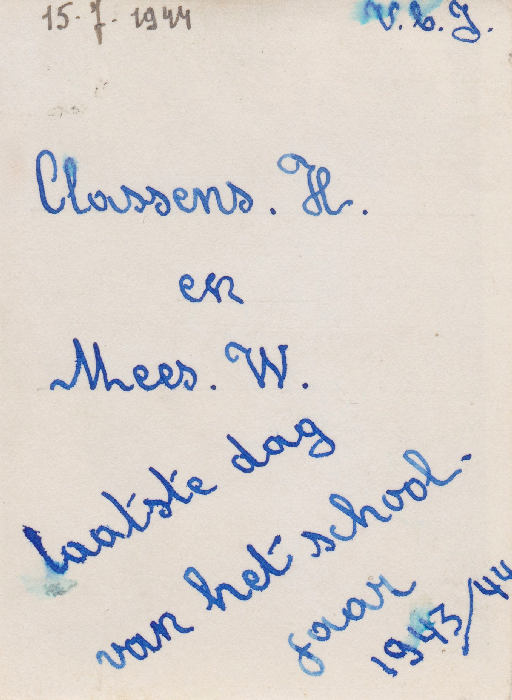 15.7.1944
V.b.J.
Classens. H.
en
Mees. W.
laatste dag
van het school-
jaar
1943/44